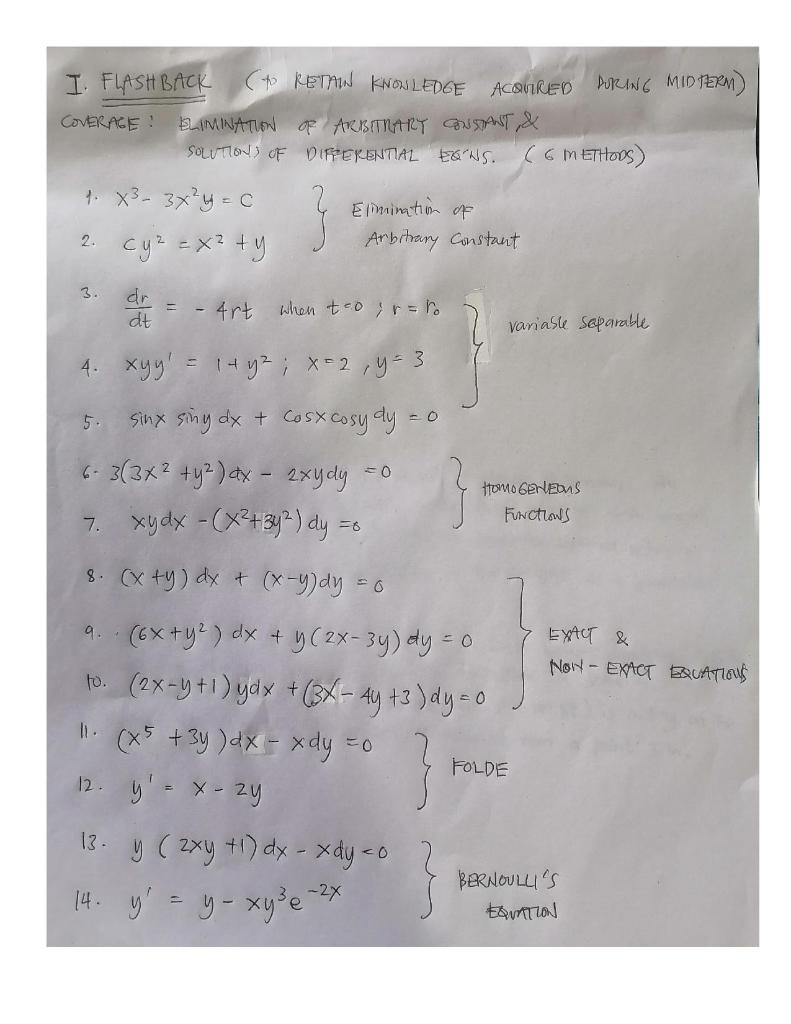 I. FLASHBACK (to RETAIN KNOWLEDGE ACQUIRED DURING MIDTERM)
COVERAGE: ELIMINATION OF ARBITRARY CONSTANT, &
SOLUTIONS OF DIFFERENTIAL EQ'NS. (6 METHODS)
1. x³ - 3x²y = C
2. cy² = x² + y
Elimination of
Arbitrary Constant
3. dr/dt = - 4rt when t=0 ; r = r₀
4. xyy' = 1 + y² ; x = 2 , y = 3
5. sinx siny dx + cosx cosy dy = 0
variable separable
6. 3(3x² + y²)dx - 2xydy = 0
7. xydx - (x² + 3y²) dy = 0
HOMOGENEOUS
FUNCTIONS
8. (x + y) dx + (x - y)dy = 0
9. (6x + y²) dx + y(2x - 3y) dy = 0
10. (2x - y + 1) ydx + (3x - 4y + 3)dy = 0
EXACT &
NON-EXACT EQUATIONS
11. (x⁵ + 3y)dx - xdy = 0
12. y' = x - 2y
FOLDE
13. y (2xy + 1) dx - xdy = 0
14. y' = y - xy³e⁻²ˣ
BERNOULLI'S
EQUATION